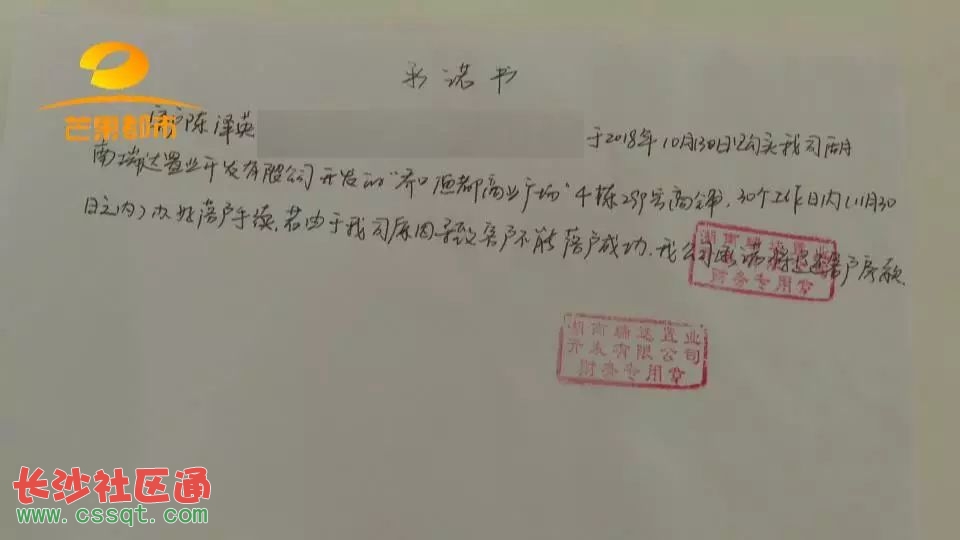 承诺书
芒果都市
客户陈泽英
于2018年10月30日购买我司湖
南瑞达置业开发有限公司开发的“乔口渔都商业广场”4栋 号商铺,30个工作日内(11月30
日之内)办好落户手续,若由于我司原因导致客户不能落户成功,我公司承诺将退还客户房款.
财务专用章
湖南瑞达置业
开发有限公司
财务专用章
长沙社区通
www.cssqt.com